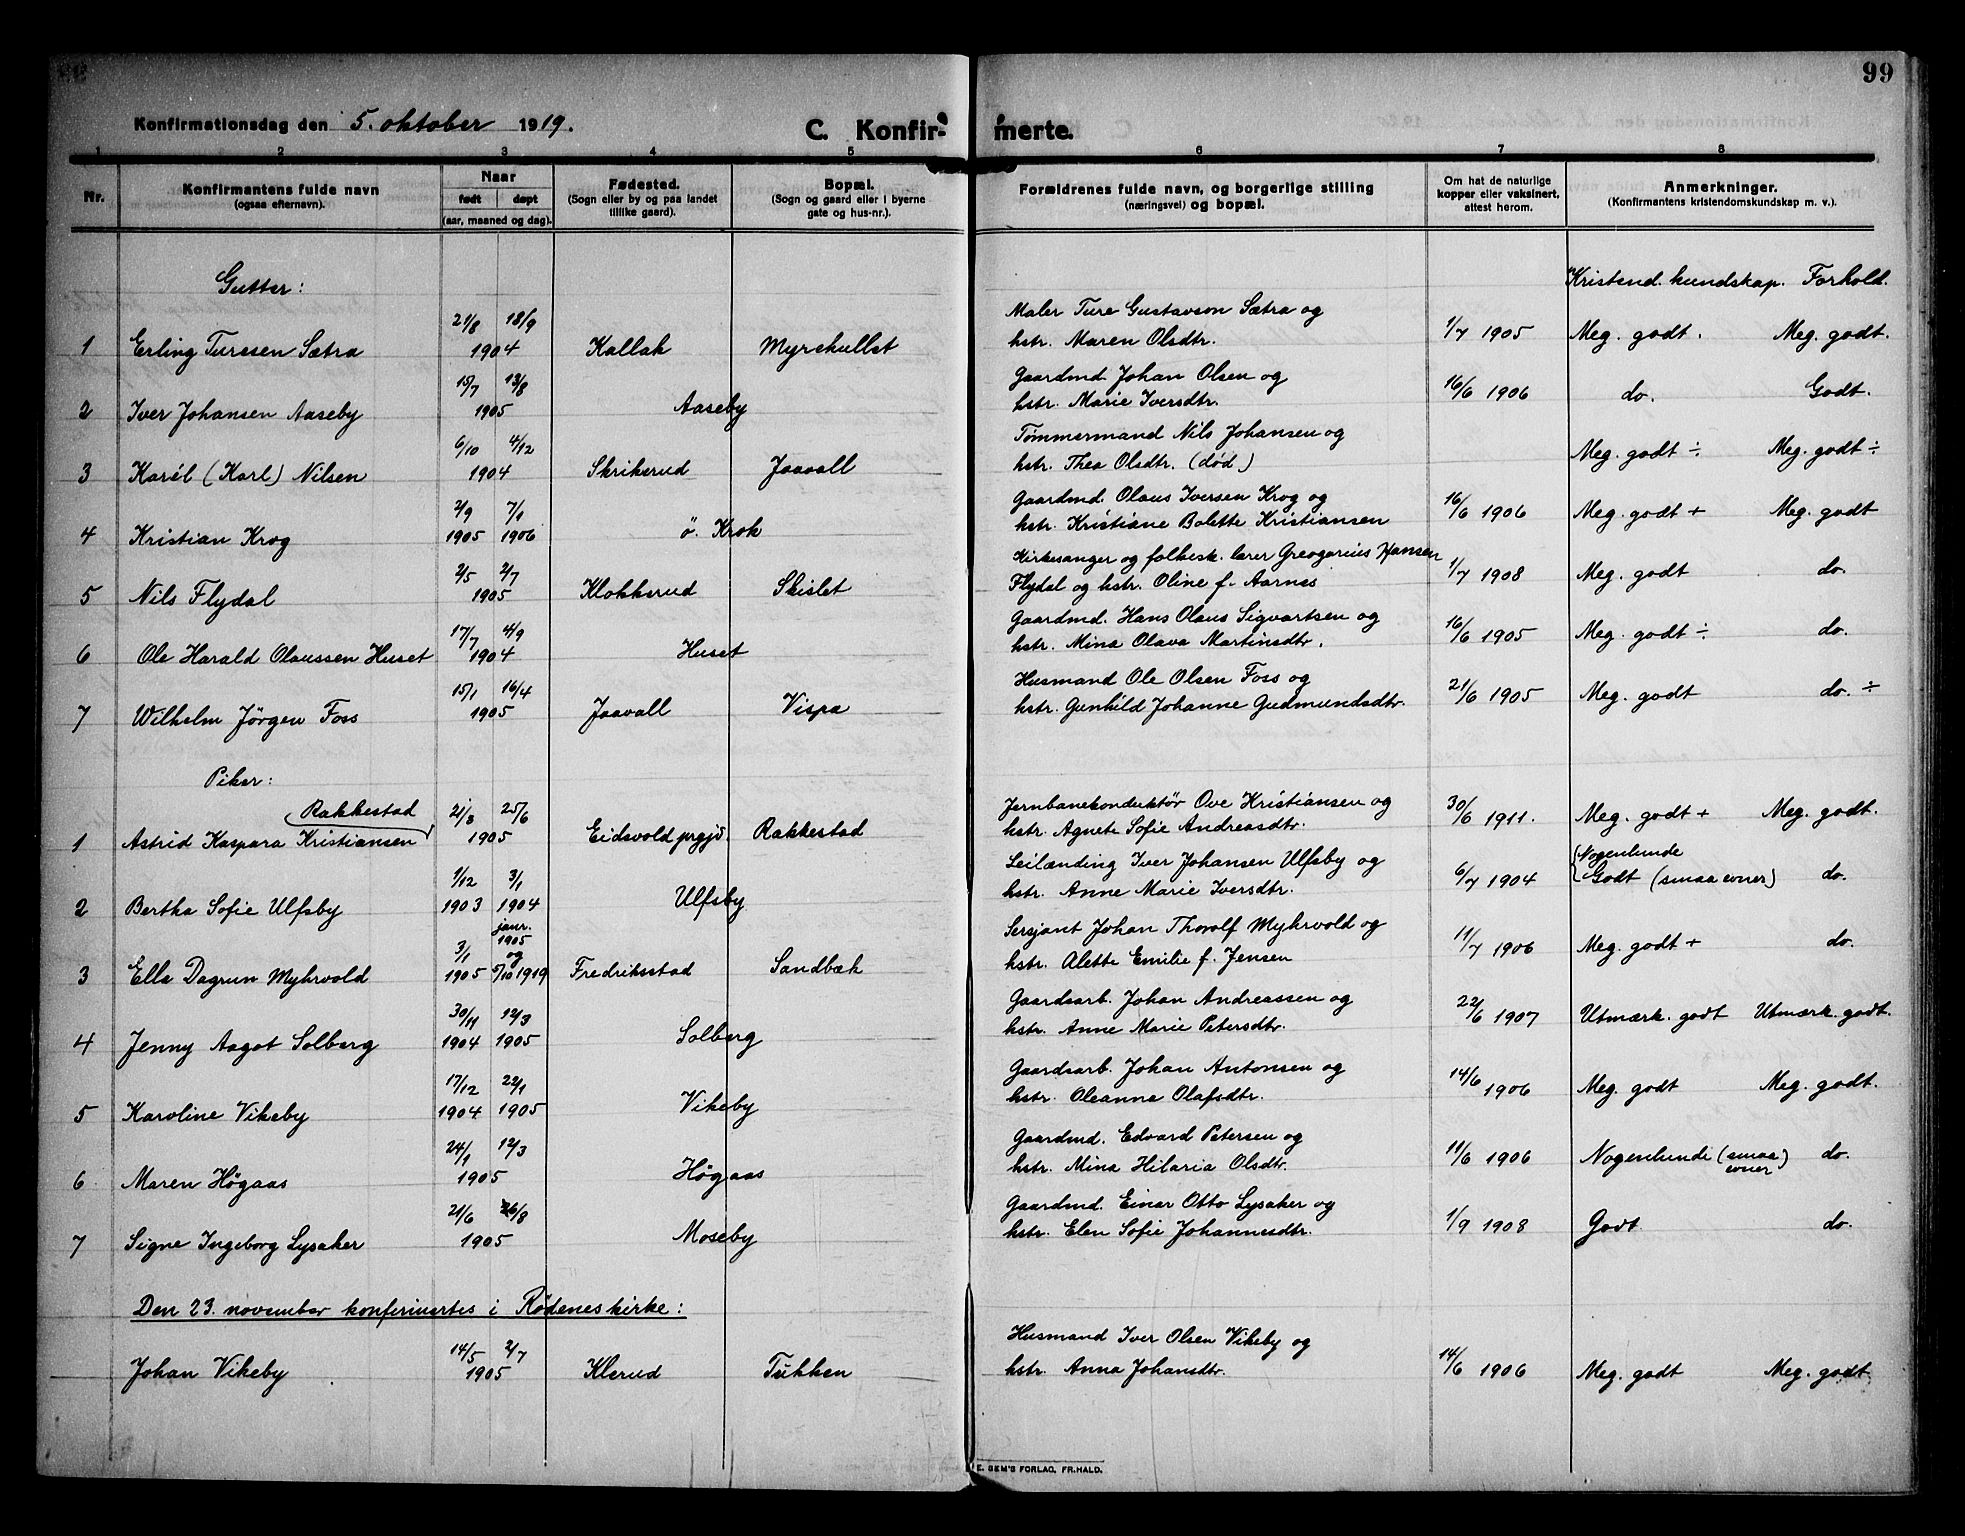 99
Konfirmationsdag den 5. oktober 1919.
C. Konfirmerte.
1 2 3 4 5 6 7 8
Nr.
Konfirmantens fulde navn
(ogsaa efternavn).
Naar
født døpt
(aar, maaned og dag).
Fødested.
(Sogn eller by og paa landet
tillike gaard).
Bopæl.
(Sogn og gaard eller i byerne
gate og hus-nr.).
Forældrenes fulde navn, og borgerlige stilling
(næringsvei) og bopæl.
Om hat de naturlige
kopper eller vaksinert,
attest herom.
Anmerkninger.
(Konfirmantens kristendomskundskap m. v.).
Gutter:
Kristend. kundskap. Forhold.
21/8 18/9 Maler Ture Gustavson Sætra og
1 Erling Turesen Sætra 1904 Kallak Myrekullet hstr. Maren Olsdtr. 1/7 1905 Meg. godt. Meg. godt.
15/7 13/8 Gaardmd. Johan Olsen og
2 Iver Johansen Aaseby 1905 Aaseby hstr. Marie Iversdtr. 16/6 1906 do. Godt.
6/10 4/12 Tømmermand Nils Johansen og
3 Karél (Karl) Nilsen 1904 Skrikerud Jaavall hstr. Thea Olsdtr. (død) Meg. godt ÷ Meg. godt ÷
2/9 7/1 Gaardmd. Olaus Iversen Krog og
4 Kristian Krog 1905 1906 ö. Krok hstr. Kristiane Bolette Kristiansen 16/6 1906 Meg. godt + Meg. godt
2/5 2/7 Kirkesanger og folkesk. lærer Greogorius Hansen
5 Nils Flydal 1905 Klokkerud Skislet Flydal og hstr. Oline f. Aarnes 1/7 1908 Meg. godt do.
17/7 4/9 Gaardmd. Hans Olaus Sigvartsen og
6 Ole Harald Olaussen Huset 1904 Huset hstr. Mina Olava Martinsdtr. 16/6 1905 Meg. godt ÷ do.
15/1 16/4 Husmand Ole Olsen Foss og
7 Wilhelm Jörgen Foss 1905 Jaavall Vispa hstr. Gunhild Johanne Gudmundsdtr. 21/6 1905 Meg. godt do. ÷
Piker:
Rakkestad 21/3 25/6 Jernbanekonduktör Ove Kristiansen og
1 Astrid Kaspara Kristiansen 1905 Eidsvold prgjd. Rakkestad hstr. Agnete Sofie Andreasdtr. 30/6 1911. Meg. godt + Meg. godt.
1/12 3/1 Leilænding Iver Johansen Ulfsby og Nogenlunde
2 Bertha Sofie Ulfsby 1903 1904 Ulfsby hstr. Anne Marie Iversdtr. 6/7 1904 Godt (smaa evner) do.
janr.
1905
3/1 og Sersjant Johan Thorolf Myhrvold og
3 Ella Dagrun Myhrvold 1905 5/10 1919 Fredriksstad Sandbæk hstr. Alette Emilie f. Jensen 11/7 1906 Meg. godt + do.
30/11 12/3 Gaardsarb. Johan Andreassen og
4 Jenny Aagot Solberg 1904 1905 Solberg hstr. Anne Marie Petersdtr. 22/6 1907 Utmærk. godt Utmærk. godt.
17/12 22/1 Gaardsarb. Johan Antonsen og
5 Karoline Vikeby 1904 1905 Vikeby hstr. Oleanna Olafsdtr. 14/6 1906 Meg. godt Meg. godt.
24/1 12/3 Gaardmd. Edvard Petersen og
6 Maren Högaas 1905 Högaas hstr. Mina Hilaria Olsdtr. 11/6 1906 Nogenlunde (smaa evner) do.
21/6 26/8 Gaardmd. Einar Otto Lysaker og
7 Signe Ingeborg Lysaker 1905 Moseby hstr. Elen Sofie Johannesdtr. 1/9 1908 Godt do.
Den 23. november konfirmertes i Rödenes kirke:
14/5 2/7 Husmand Iver Olsen Vikeby og
Johan Vikeby 1905 Klerud Tukken hstr. Anna Johansdtr. 14/6 1906 Meg. godt Meg. godt
E. SEM'S FORLAG, FR.HALD.